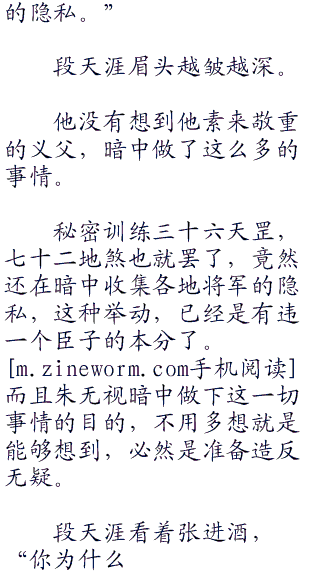 的隐私。”
段天涯眉头越皱越深。
他没有想到他素来敬重
的义父，暗中做了这么多的
事情。
秘密训练三十六天罡，
七十二地煞也就罢了，竟然
还在暗中收集各地将军的隐
私，这种举动，已经是有违
一个臣子的本分了。
[m.zineworm.com手机阅读]
而且朱无视暗中做下这一切
事情的目的，不用多想就是
能够想到，必然是准备造反
无疑。
段天涯看着张进酒，
“你为什么